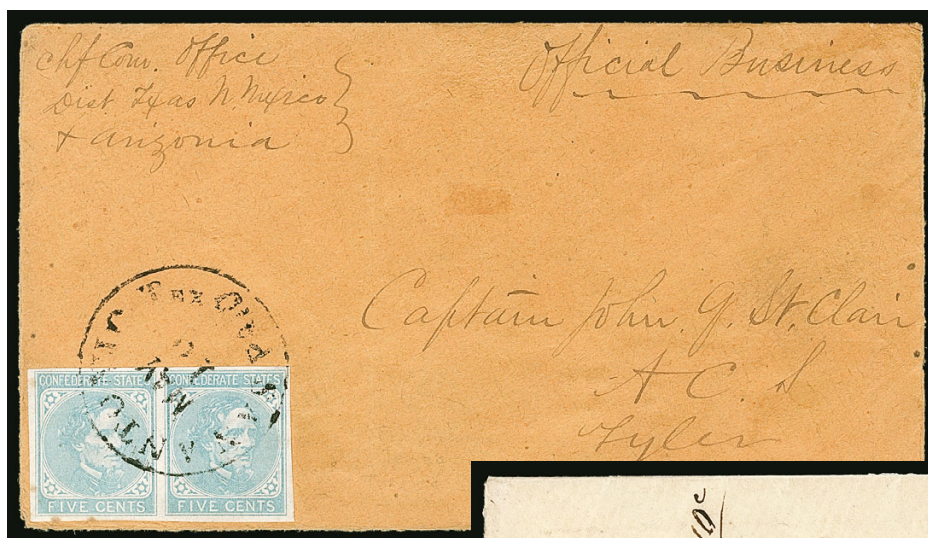 Chf Com. Office
Dist. Texas N. Mexico
& Arizonia
Official Business
Captain John G. St. Clair
A C S
Tyler
SAN ANTONIO TEX
CONFEDERATE STATES
FIVE CENTS
CONFEDERATE STATES
FIVE CENTS
10c